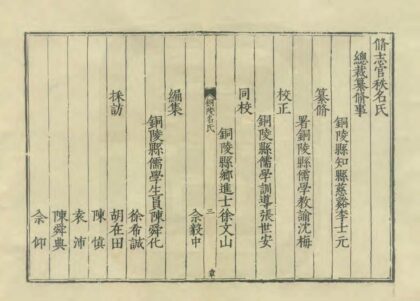 脩志官秩名氏
總裁纂脩事
銅陵縣知縣慈谿李士元
纂脩
署銅陵縣儒學教諭沈梅
校正
銅陵縣儒學訓導張世安
同校
銅陵縣鄉進士徐文山
銅陵名氏
三
章
佘毅中
編集
銅陵縣儒學生員陳舜化
徐希誠
採訪
胡在田
陳慎
袁沛
陳舜典
佘仰